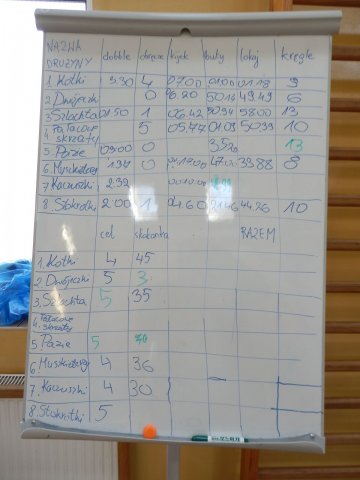 NAZWA DRUŻYNY dobble obręcze kijek buty lokaj kręgle
1. Kotki 3:30 4 07.00 01:00 01:18 9
2. Dwójeczki 0 6.20 50.14 49.49 6
3. Szlachta 01:50 1 06.42 50.94 58.00 13
4. Pałacowe skrzaty 5 05.77 01:09 50.99 10
5. Pazie 09:00 0 13
6. Muszkieterzy 0 47.00 39.88 8
7. Kaczuszki 2:32
8. Stokrotki 2:00 1 04.60 44,26 10
cel skakanka RAZEM
1. Kotki 4 45
2. Dwójeczki 5 3
3. Szlachta 5 35
4. Pałacowe skrzaty
5 Pazie 5
6. Muszkieterzy 4 36
7. Kaczuszki 4 30
8. Stokrotki 5